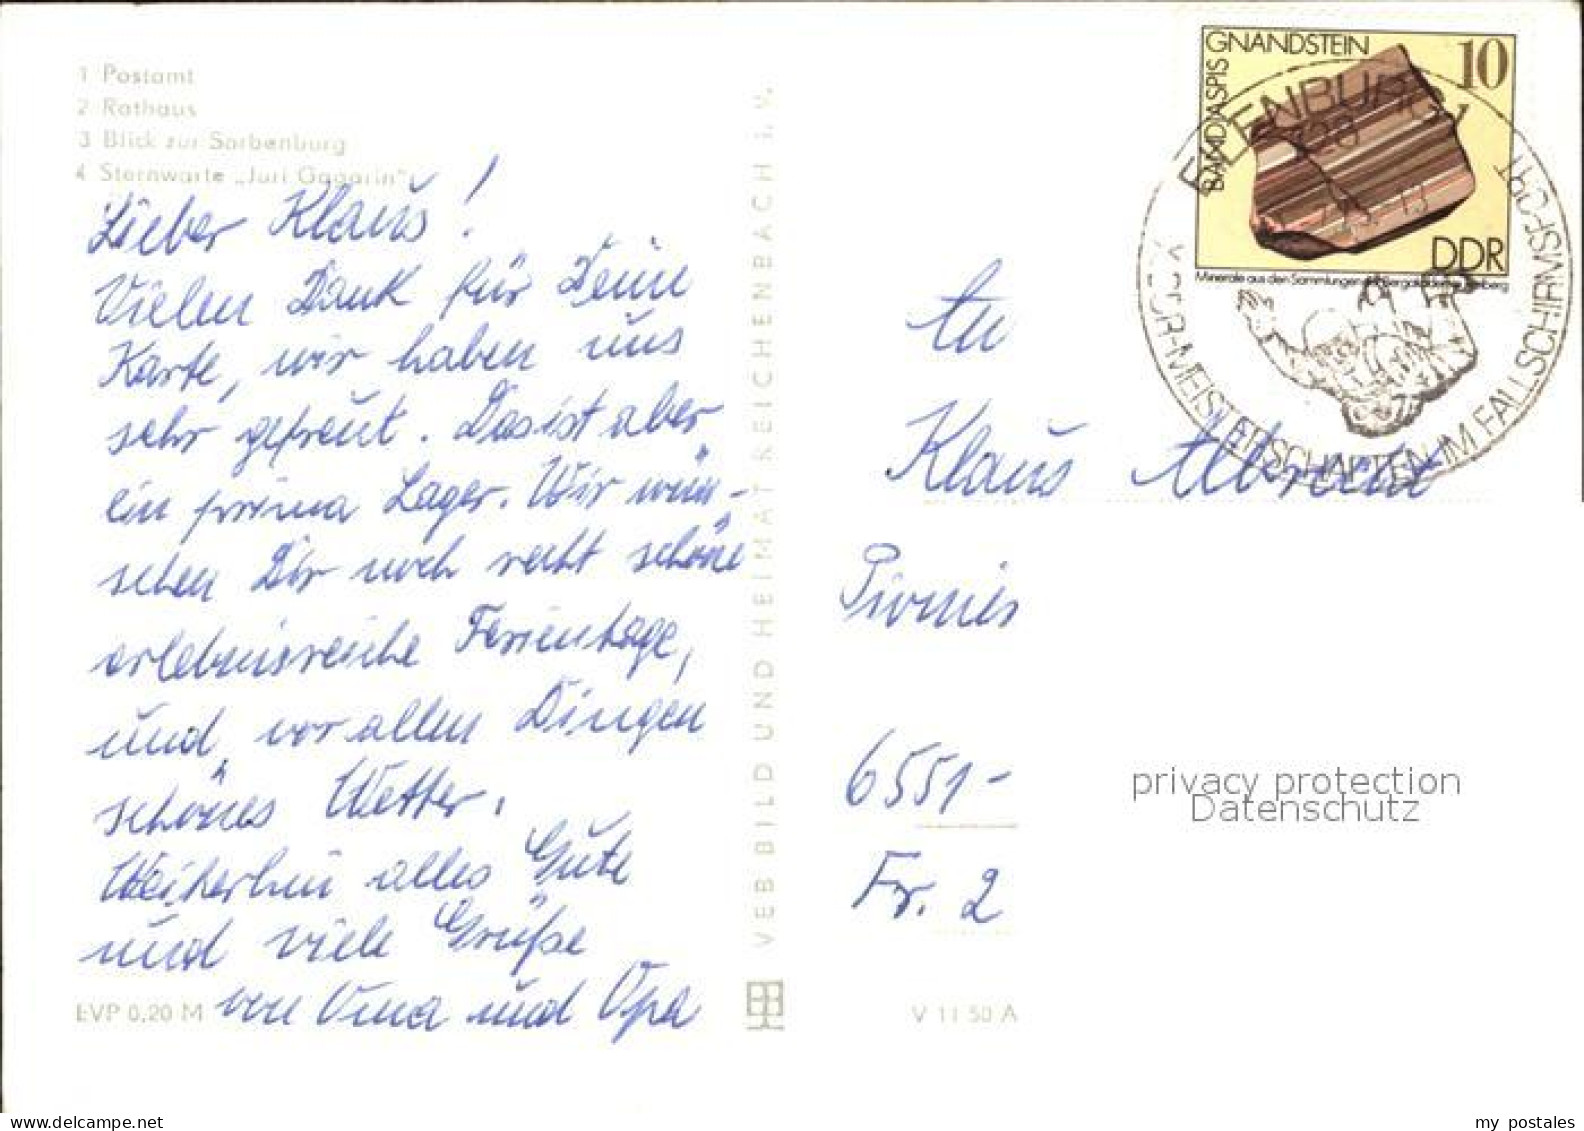 1 Postamt
2 Rathaus
3 Blick zur Sorbenburg
4 Sternwarte „Juri Gagarin“
Lieber Klaus!
Vielen Dank für Deine
Karte, wir haben uns
sehr gefreut. Das ist aber
ein prima Lager. Wir wün-
schen Dir noch recht schöne
erlebnisreiche Ferientage,
und vor allen Dingen
schönes Wetter.
Weiterhin alles Gute
und viele Grüße
von Oma und Opa
EVP 0,20 M
VEB BILD UND HEIMAT REICHENBACH i. V.
V 11 50 A
GNANDSTEIN
10
BANDJASPIS
DDR
Minerale aus den Sammlungen der Bergakademie Freiberg
EILENBURG 1
728
DDR-MEISTERSCHAFTEN IM FALLSCHIRMSPORT
An
Klaus Albrecht
Pionier
6551-
Fr. 2
privacy protection
Datenschutz
my postales